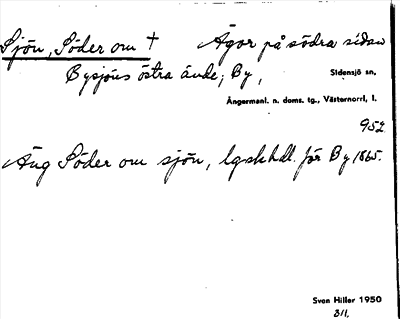 Sjön, Söder om † Ägor på södra sidan
Bysjöns östra ände; By,
Sidensjö sn,
Ångermanl. n. doms. tg., Västernorrl. l.
952
Äng Söder om sjön, lgskhdl. för By 1865.
Sven Hiller 1950
311.